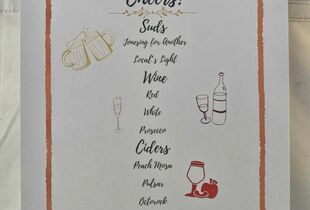 Cheers!
Suds
Jonesing for Another
Local's Light
Wine
Red
White
Prosecco
Ciders
Peach Mosa
Pulsar
Octorock